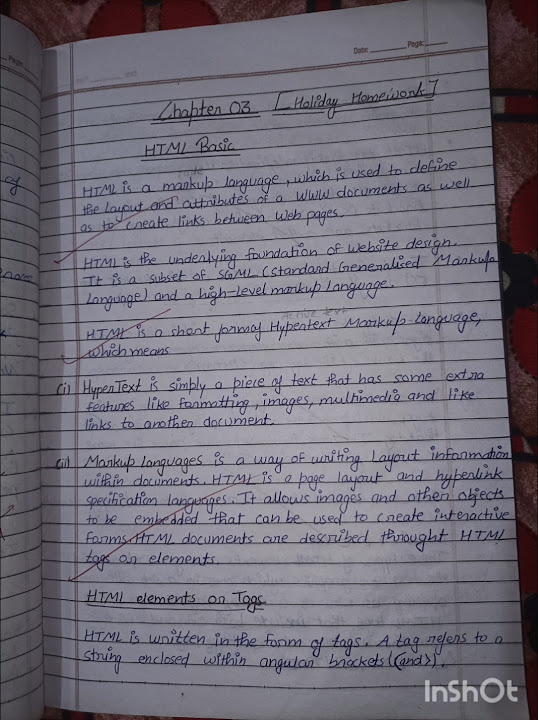 Date: Page:
Chapter 03 [Holiday Homework]
HTML Basic
HTML is a markup language, which is used to define
the layout and attributes of a WWW documents as well
as to create links between Web pages.
HTML is the underlying foundation of website design.
It is a subset of SGML (Standard Generalised Markup
Language) and a high-level markup language.
HTML is a short form of Hypertext Markup Language,
which means
(i) HyperText is simply a piece of text that has some extra
features like formatting, images, multimedia and like
links to another document.
(ii) Markup languages is a way of writing layout information
within documents. HTML is a page layout and hyperlink
specification languages. It allows images and other objects
to be embedded that can be used to create interactive
forms. HTML documents are described throught HTML
tags or elements.
HTML elements or Tags
HTML is written in the form of tags. A tag refers to a
string enclosed within angular brackets (<and>).
InShOt